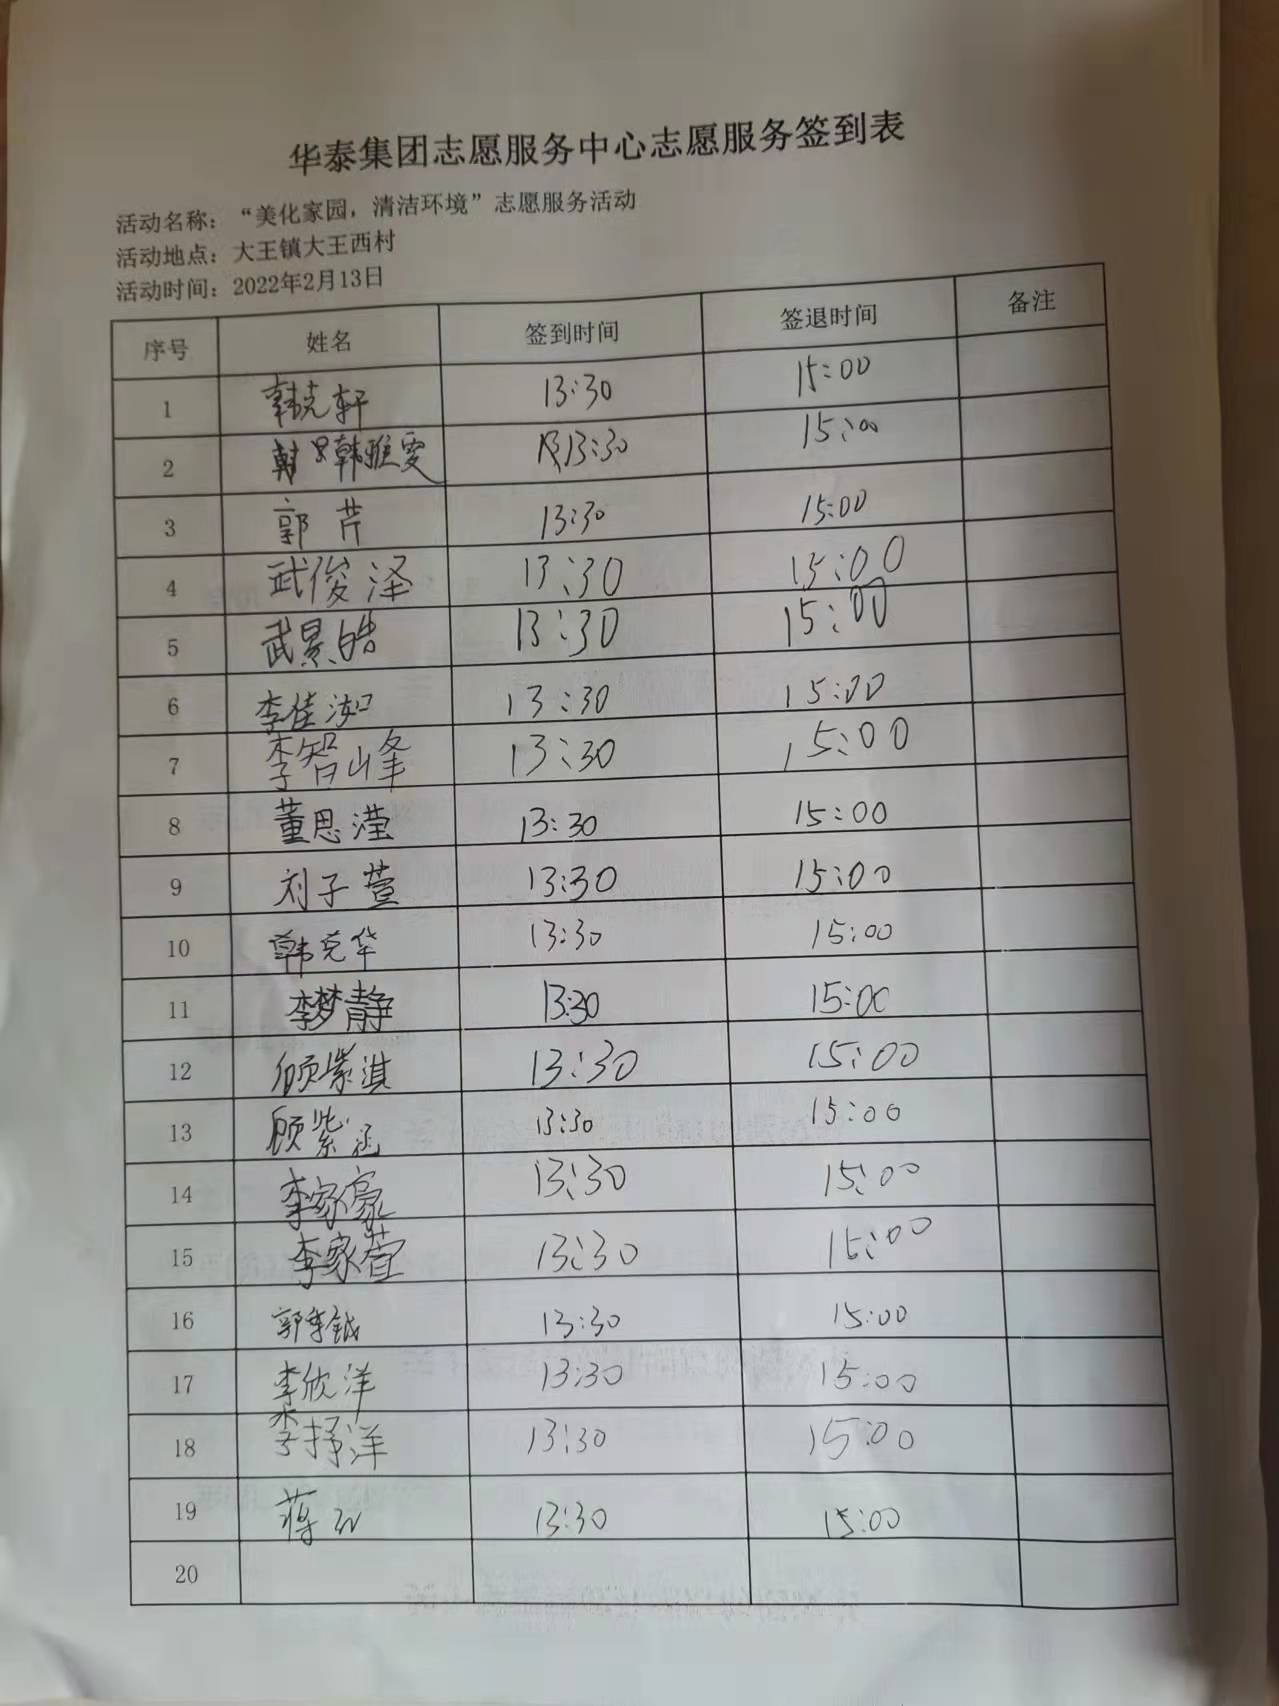 华泰集团志愿服务中心志愿服务签到表
活动名称：“美化家园，清洁环境”志愿服务活动
活动地点：大王镇大王西村
活动时间：2022年2月13日
序号 姓名 签到时间 签退时间 备注
1 韩克轩 13:30 15:00
2 韩雅雯 13:30 15:00
3 郭芹 13:30 15:00
4 武俊泽 13:30 15:00
5 武景皓 13:30 15:00
6 李佳 13:30 15:00
7 李智峰 13:30 15:00
8 董思滢 13:30 15:00
9 刘子萱 13:30 15:00
10 韩克华 13:30 15:00
11 李梦静 13:30 15:00
12 顾紫淇 13:30 15:00
13 顾紫涵 13:30 15:00
14 李家豪 13:30 15:00
15 李家萱 13:30 15:00
16 郭 13:30 15:00
17 李欣洋 13:30 15:00
18 李抒洋 13:30 15:00
19 蒋 13:30 15:00
20